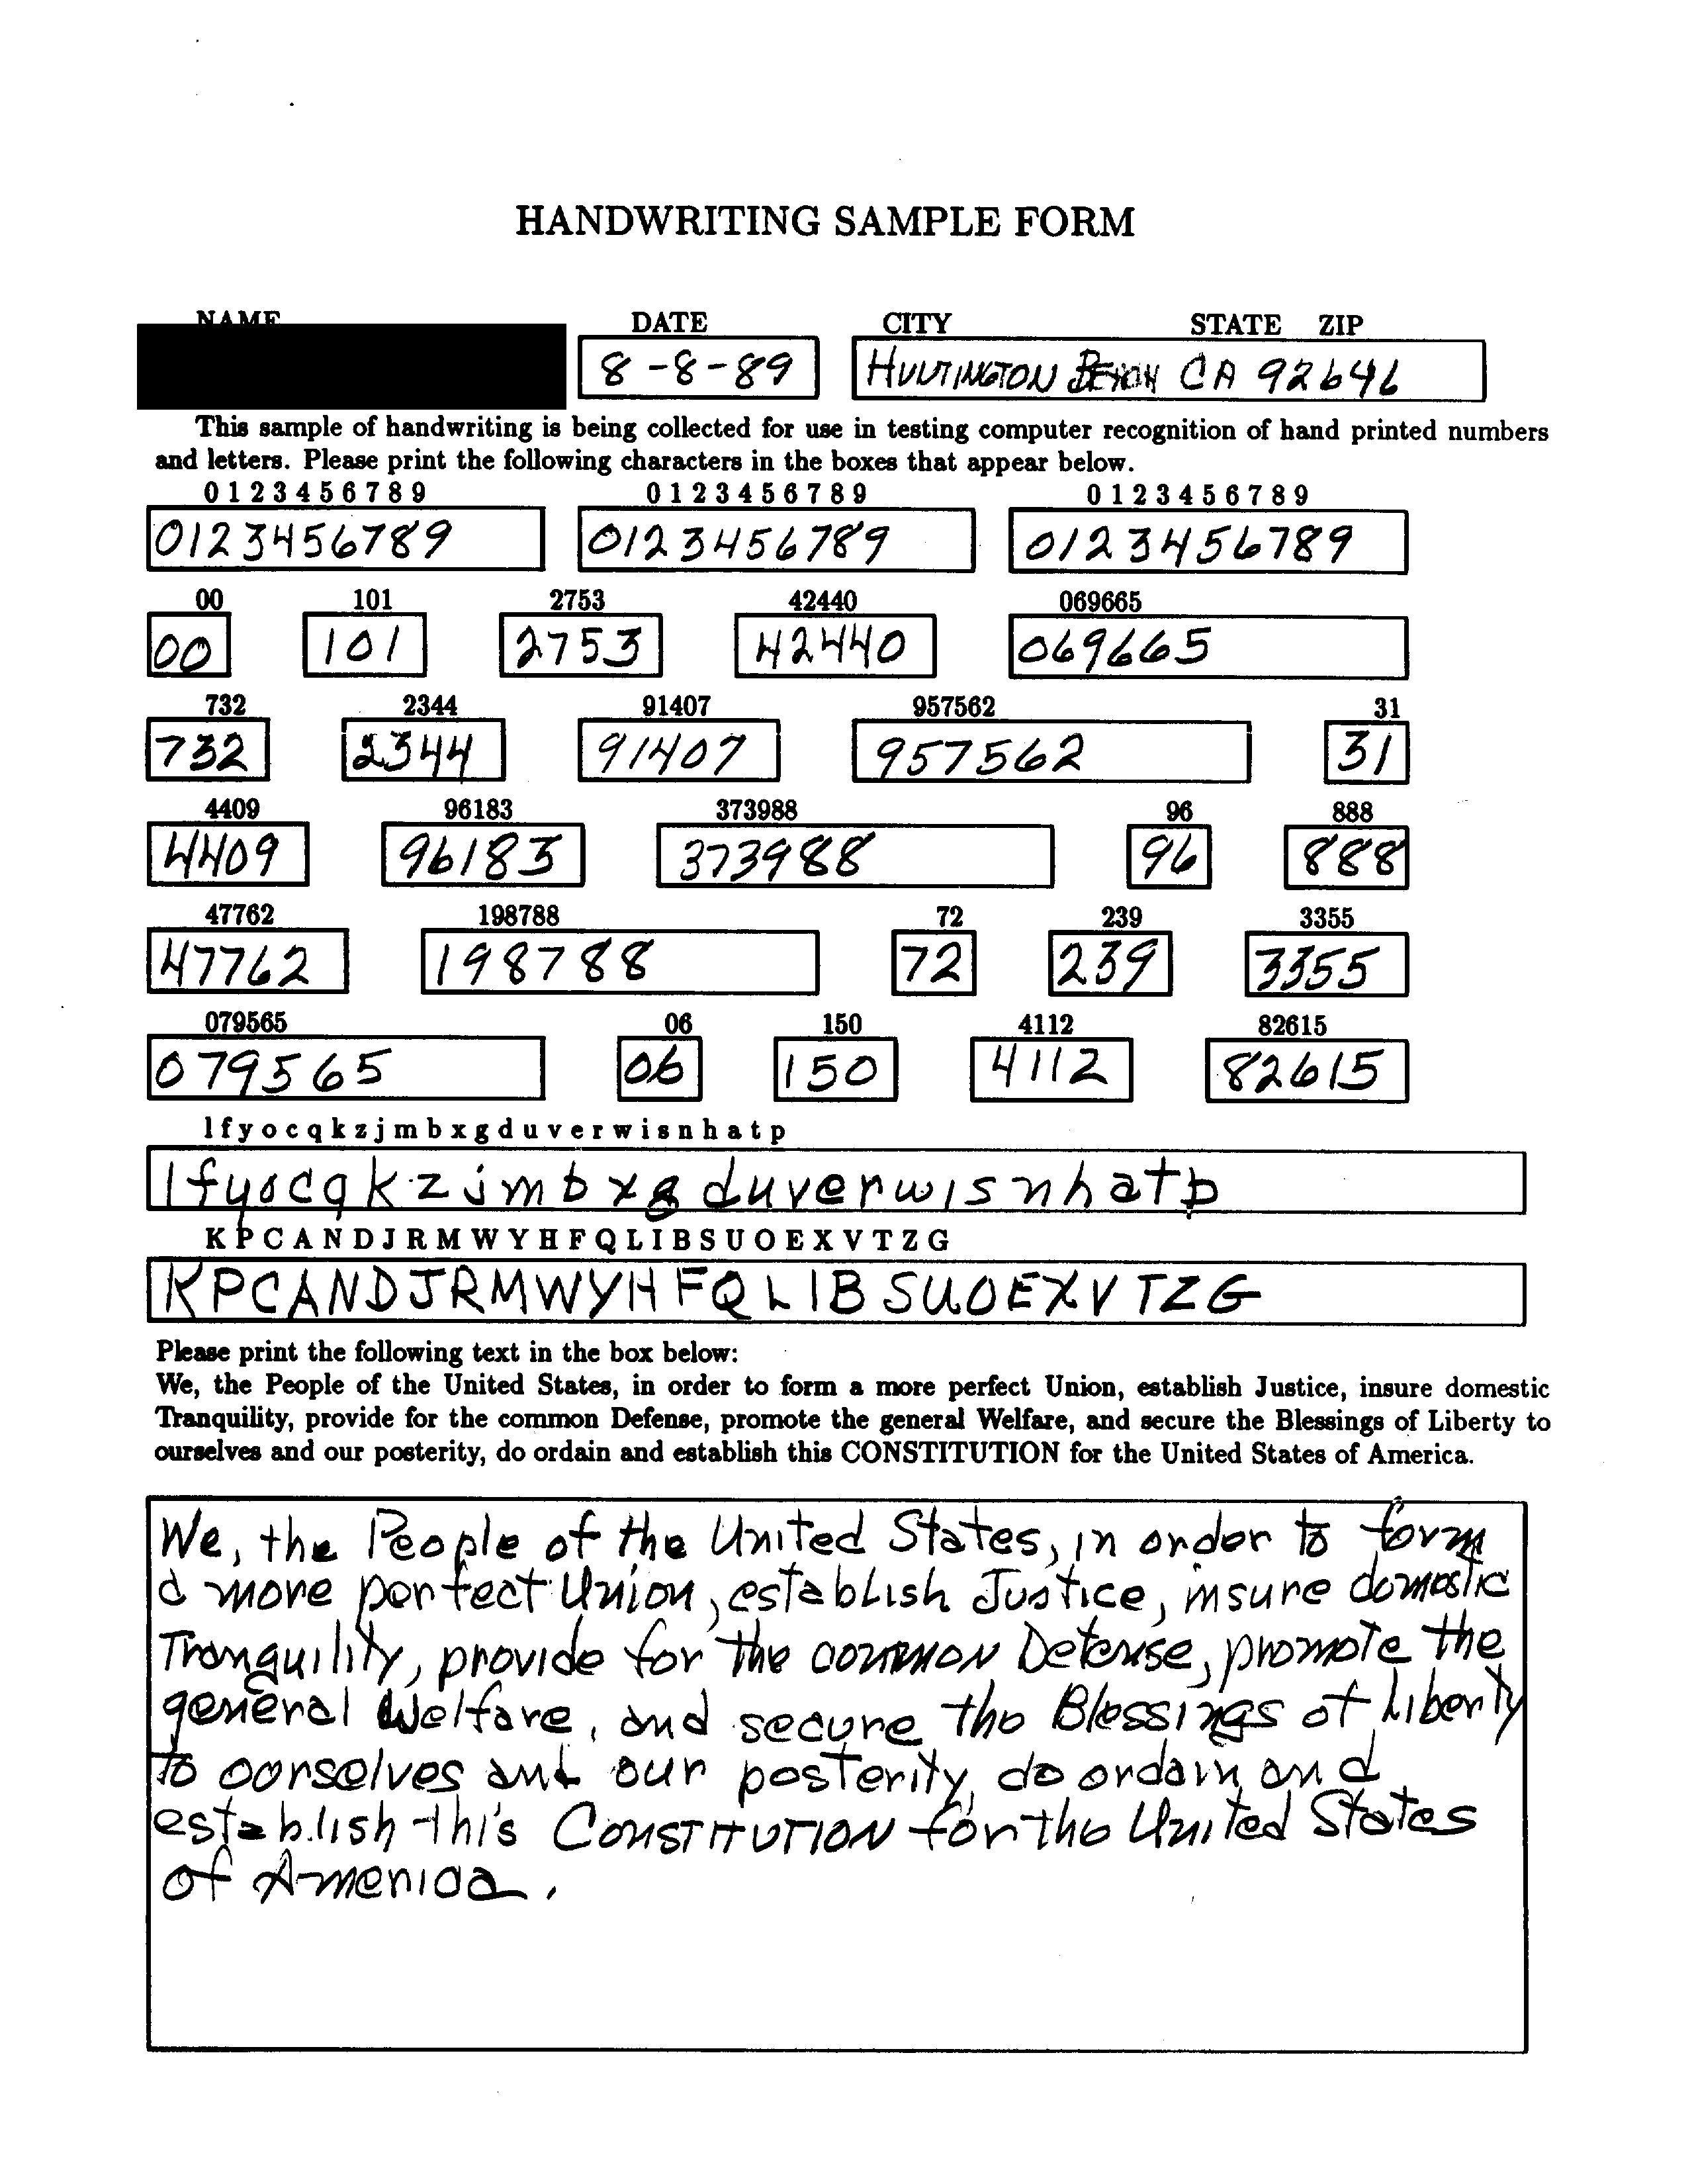 HANDWRITING SAMPLE FORM
NAME DATE CITY STATE ZIP
8-8-89 HUNTINGTON BEACH CA 92646
This sample of handwriting is being collected for use in testing computer recognition of hand printed numbers
and letters. Please print the following characters in the boxes that appear below.
0 1 2 3 4 5 6 7 8 9 0 1 2 3 4 5 6 7 8 9 0 1 2 3 4 5 6 7 8 9
0123456789 0123456789 0123456789
00 101 2753 42440 069665
00 101 2753 42440 069665
732 2344 91407 957562 31
732 2344 91407 957562 31
4409 96183 373988 96 888
4409 96183 373988 96 888
47762 198788 72 239 3355
47762 198788 72 239 3355
079565 06 150 4112 82615
079565 06 150 4112 82615
l f y o c q k z j m b x g d u v e r w i s n h a t p
l f y o c q k z j m b x g d u v e r w i s n h a t p
K P C A N D J R M W Y H F Q L I B S U O E X V T Z G
K P C A N D J R M W Y H F Q L I B S U O E X V T Z G
Please print the following text in the box below:
We, the People of the United States, in order to form a more perfect Union, establish Justice, insure domestic
Tranquility, provide for the common Defense, promote the general Welfare, and secure the Blessings of Liberty to
ourselves and our posterity, do ordain and establish this CONSTITUTION for the United States of America.
We, the People of the United States, in order to form
a more perfect Union, establish Justice, insure domestic
Tranquility, provide for the common Defense, promote the
general Welfare, and secure the Blessings of Liberty
to ourselves and our posterity, do ordain and
establish this CONSTITUTION for the United States
of America.